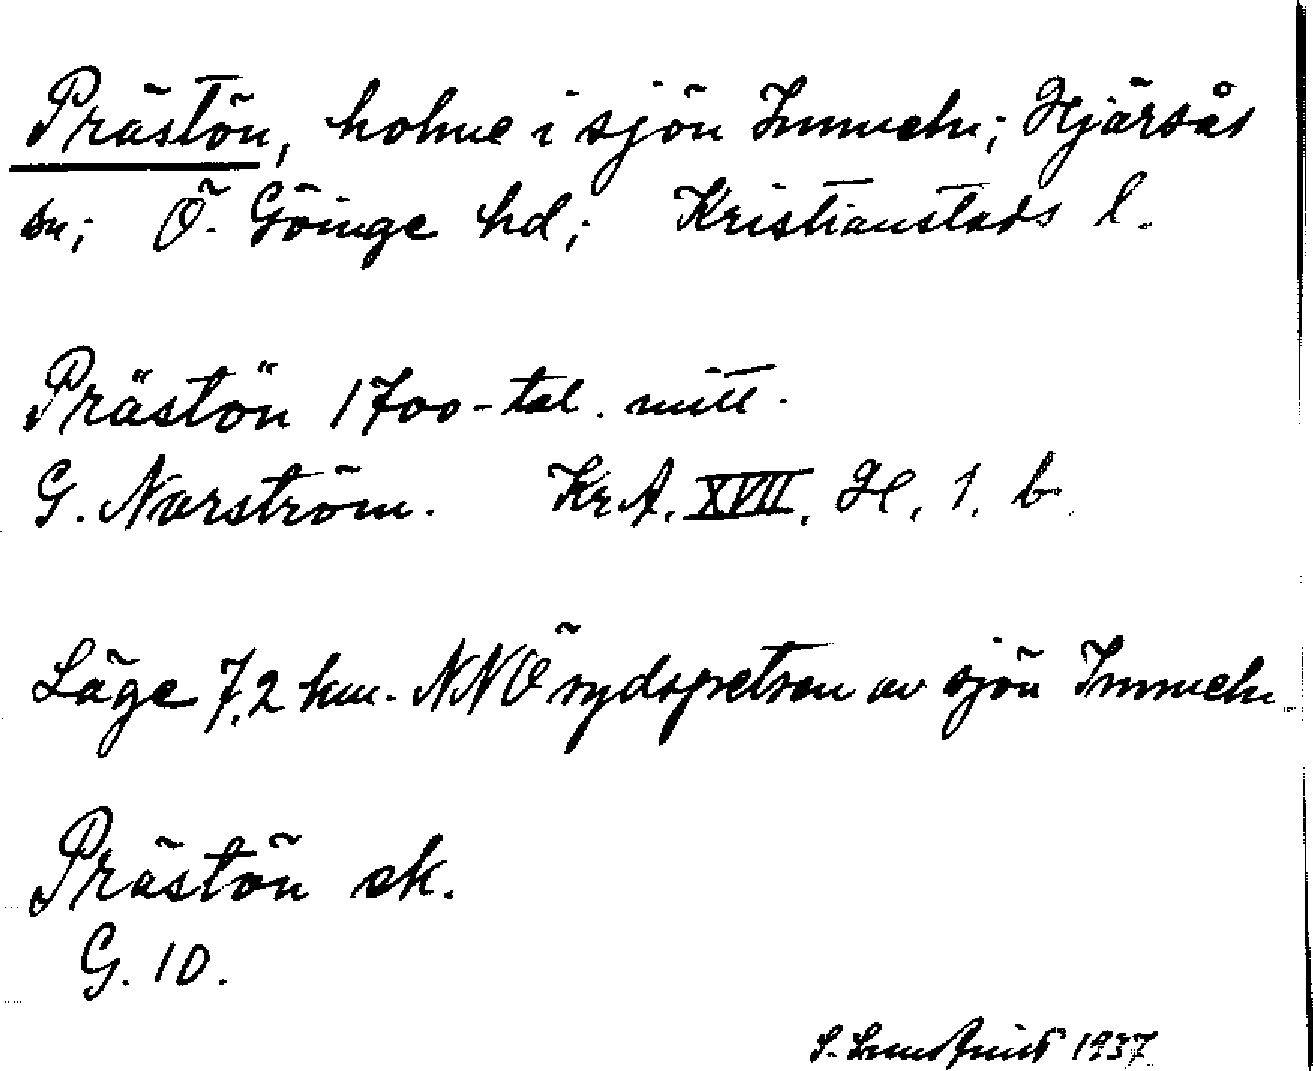 Prästön, holme i sjön Immeln; Hjärsås
sn; Ö. Göinge hd; Kristianstads l.
Prästön 1700-tal. mitt.
G. Norström. Kr.A. XVII, H, 1, b.
Läge 7,2 km. NNÖ sydspetsen av sjön Immeln
Prästön ek.
G. 10.
S. 1937